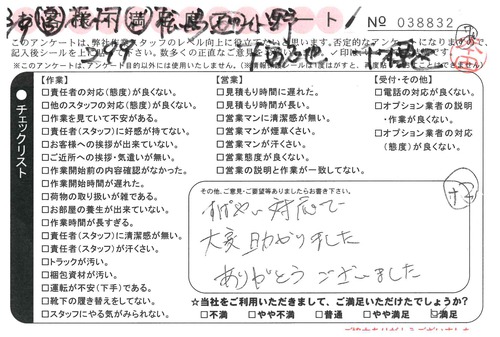 № 038832
このアンケートは、弊社作業スタッフのレベル向上に役立てたいと思います。否定的なアンケートになりますので、
記入後シールを上に貼って下さい。数多くの真正直なご意見をお待ちしております。✓印
※このアンケート目的以外には使用いたしません。
チェックリスト
【作業】
□責任者の対応(態度)が良くない。
□他のスタッフの対応(態度)が良くない。
□作業を見ていて不安がある。
□責任者(スタッフ)に好感が持てない。
□お客様への挨拶が出来ていない。
□ご近所への挨拶・気遣いが無い。
□作業開始前の内容確認がなかった。
□作業開始時間が遅れた。
□荷物の取り扱いが雑である。
□お部屋の養生が出来ていない。
□作業時間が長すぎる。
□責任者(スタッフ)に清潔感が無い。
□責任者(スタッフ)が汗くさい。
□トラックが汚い。
□梱包資材が汚い。
□運転が不安(下手)である。
□靴下の履き替えをしてない。
□スタッフにやる気がみられない。
【営業】
□見積もり時間に遅れた。
□見積もり時間が長い。
□営業マンに清潔感が無い。
□営業マンが煙草くさい。
□営業マンが汗くさい。
□営業態度が良くない。
□営業の説明と作業が一致してない。
【受付・その他】
□電話の対応が良くない。
□オプション業者の説明
・作業が良くない。
□オプション業者の対応
(態度)が良くない。
その他、ご意見・ご要望等ありましたらお書き下さい。
すばやい対応で
大変助かりました
ありがとうございました
☆当社をご利用いただきまして、ご満足いただけたでしょうか?
□不満 □やや不満 □普通 □やや満足 ☑満足